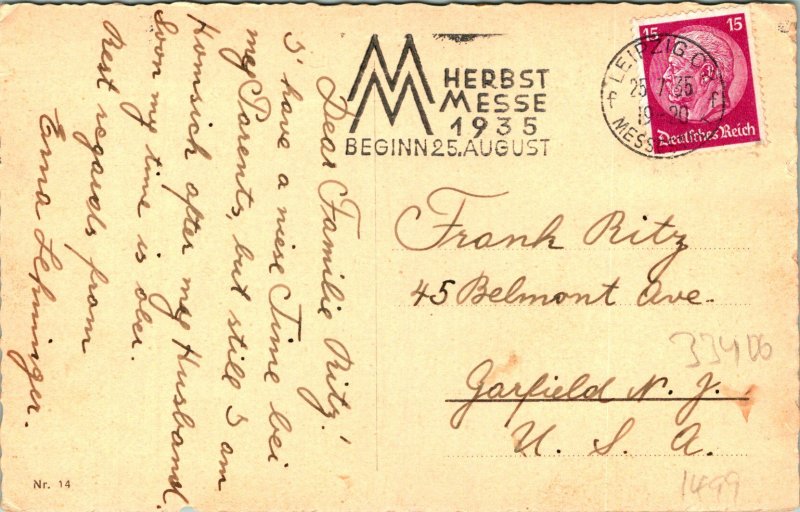 Dear Familie Ritz!
I have a niese Time bei
my Parents, but still I am
Homsich after my Husband.
Soon my time is ober.
Best regards from
Erna Lehninger.
Nr. 14
MM HERBST
MESSE
1935
BEGINN 25. AUGUST
LEIPZIG C
25.7.35
19-20
MESS
15 15
Deutsches Reich
Frank Ritz
45 Belmont Ave.
Garfield N. J.
U. S. A.
33406
1499